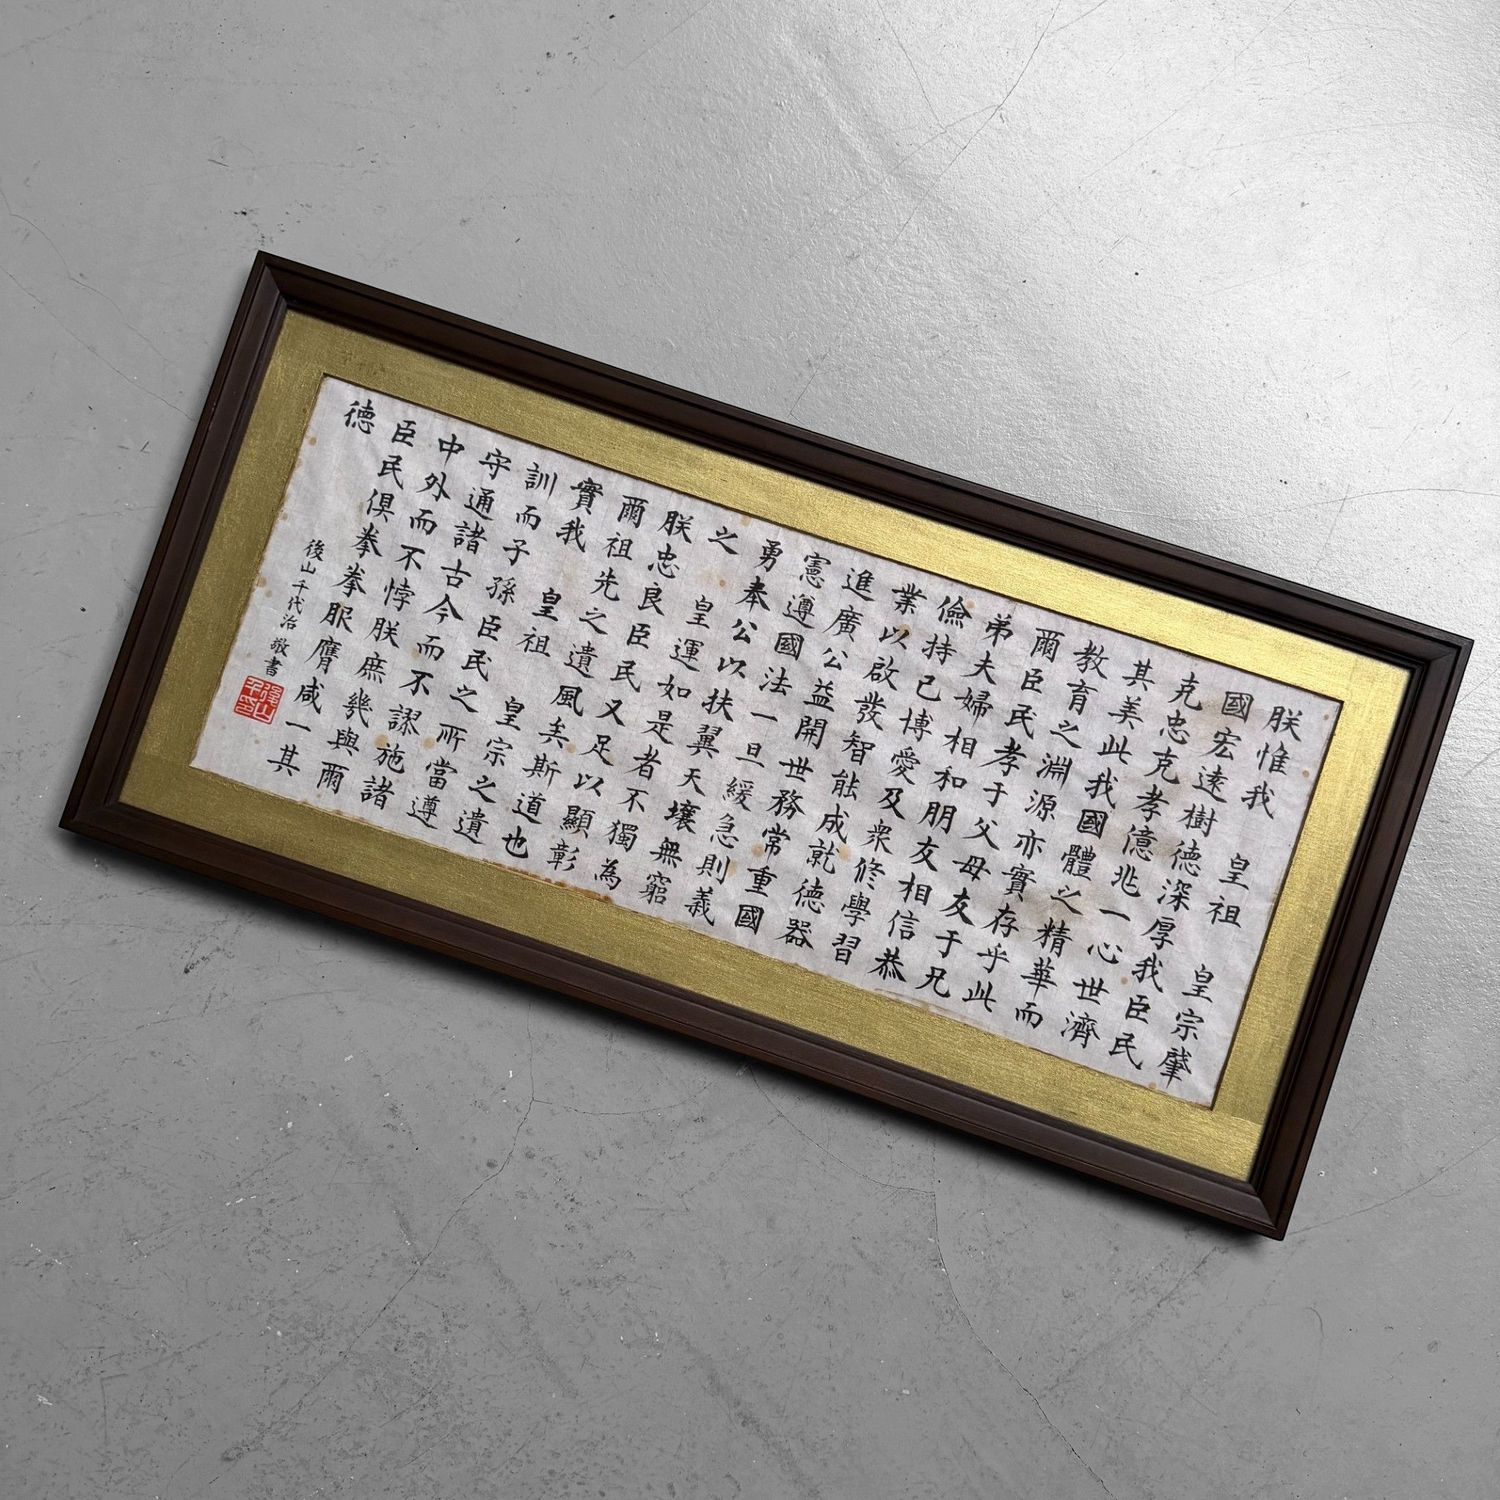 朕惟我 皇祖 皇宗肇
國宏遠樹德深厚我臣民
克忠克孝億兆一心世濟
其美此我國體之精華而
教育之淵源亦實存乎此
爾臣民孝于父母友于兄
弟夫婦相和朋友相信恭
儉持己博愛及衆修學習
業以啟發智能成就德器
進廣公益開世務常重國
憲遵國法一旦緩急則義
勇奉公以扶翼天壤無窮
之 皇運如是者不獨為
朕忠良臣民又足以顯彰
爾祖先之遺風矣斯道也
實我 皇祖 皇宗之遺
訓而子孫臣民之所當遵
守通諸古今而不謬施諸
中外而不悖朕庶幾與爾
臣民俱拳拳服膺咸一其
德
後山千代治 敬書